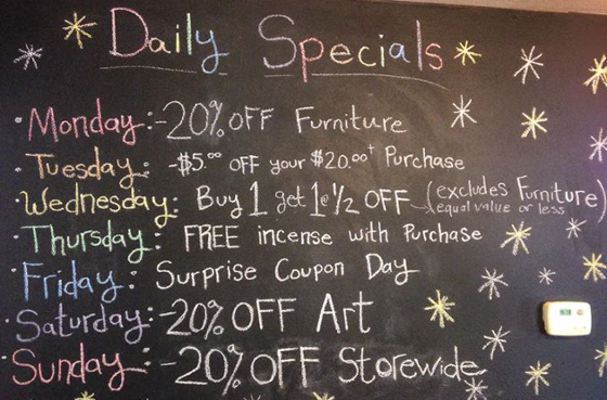 Daily Specials
· Monday: -20% OFF Furniture
· Tuesday: -$5.00 OFF your $20.00+ Purchase
· Wednesday: Buy 1 get 1 @ 1/2 OFF (excludes Furniture)
equal value or less
· Thursday: FREE incense with Purchase
· Friday: Surprise Coupon Day
· Saturday: -20% OFF Art
· Sunday: -20% OFF Storewide